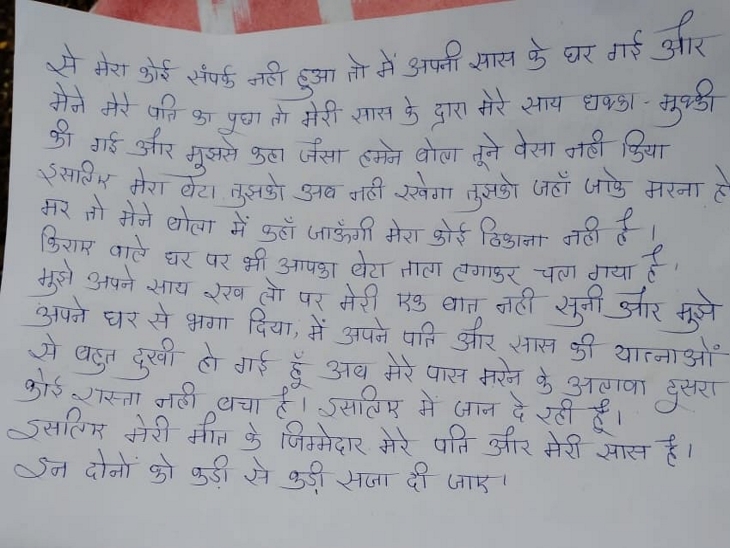 से मेरा कोई संपर्क नही हुआ तो में अपनी सास के घर गई और
मेने मेरे पति का पुछा तो मेरी सास के द्वारा मेरे साथ धक्का - मुक्की
की गई और मुझसे कहा जैसा हमने बोला तूने वेसा नही किया
इसलिए मेरा बेटा तुझको अब नही रखेगा तुझको जहाँ जाके मरना हे
मर तो मेने बोला में कहाँ जाऊँगी मेरा कोई ठिकाना नही है।
किराए वाले घर पर भी आपका बेटा ताला लगाकर चला गया है।
मुझे अपने साथ रख लो पर मेरी एक बात नही सुनी और मुझे
अपने घर से भगा दिया, में अपने पति और सास की यातनाओं
से बहुत दुखी हो गई हूँ अब मेरे पास मरने के अलावा दूसरा
कोई रास्ता नही बचा है। इसलिए में जान दे रही हूँ।
इसलिए मेरी मौत के जिम्मेदार मेरे पति और मेरी सास है।
इन दोनों को कड़ी से कड़ी सजा दी जाए।